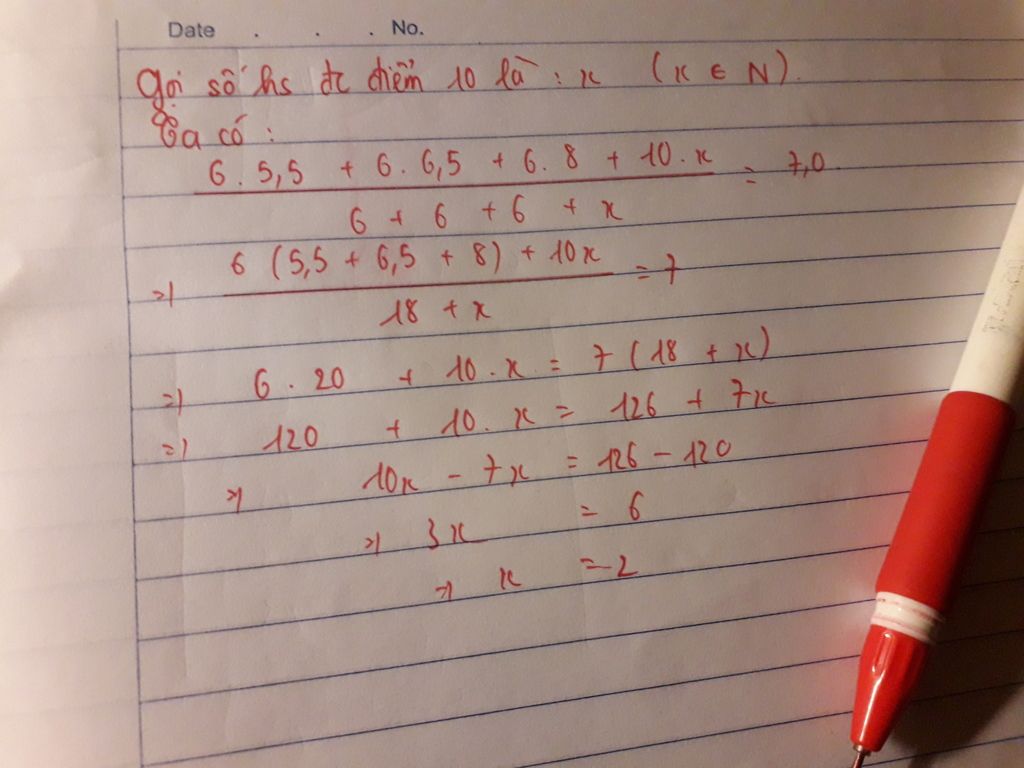 Date . . . No.
Gọi số hs đc điểm 10 là : x (x ∈ N).
Ta có :
6 . 5,5 + 6 . 6,5 + 6 . 8 + 10 . x = 7,0
6 + 6 + 6 + x
=) 6 (5,5 + 6,5 + 8) + 10x = 7
18 + x
=) 6 . 20 + 10 . x = 7 (18 + x)
=) 120 + 10 . x = 126 + 7x
=) 10x - 7x = 126 - 120
=) 3x = 6
=) x = 2